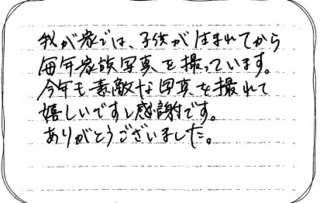 我が家では、子供がうまれてから
毎年家族写真を撮っています。
今年も素敵な写真を撮れて
嬉しいですし感謝です。
ありがとうございました。